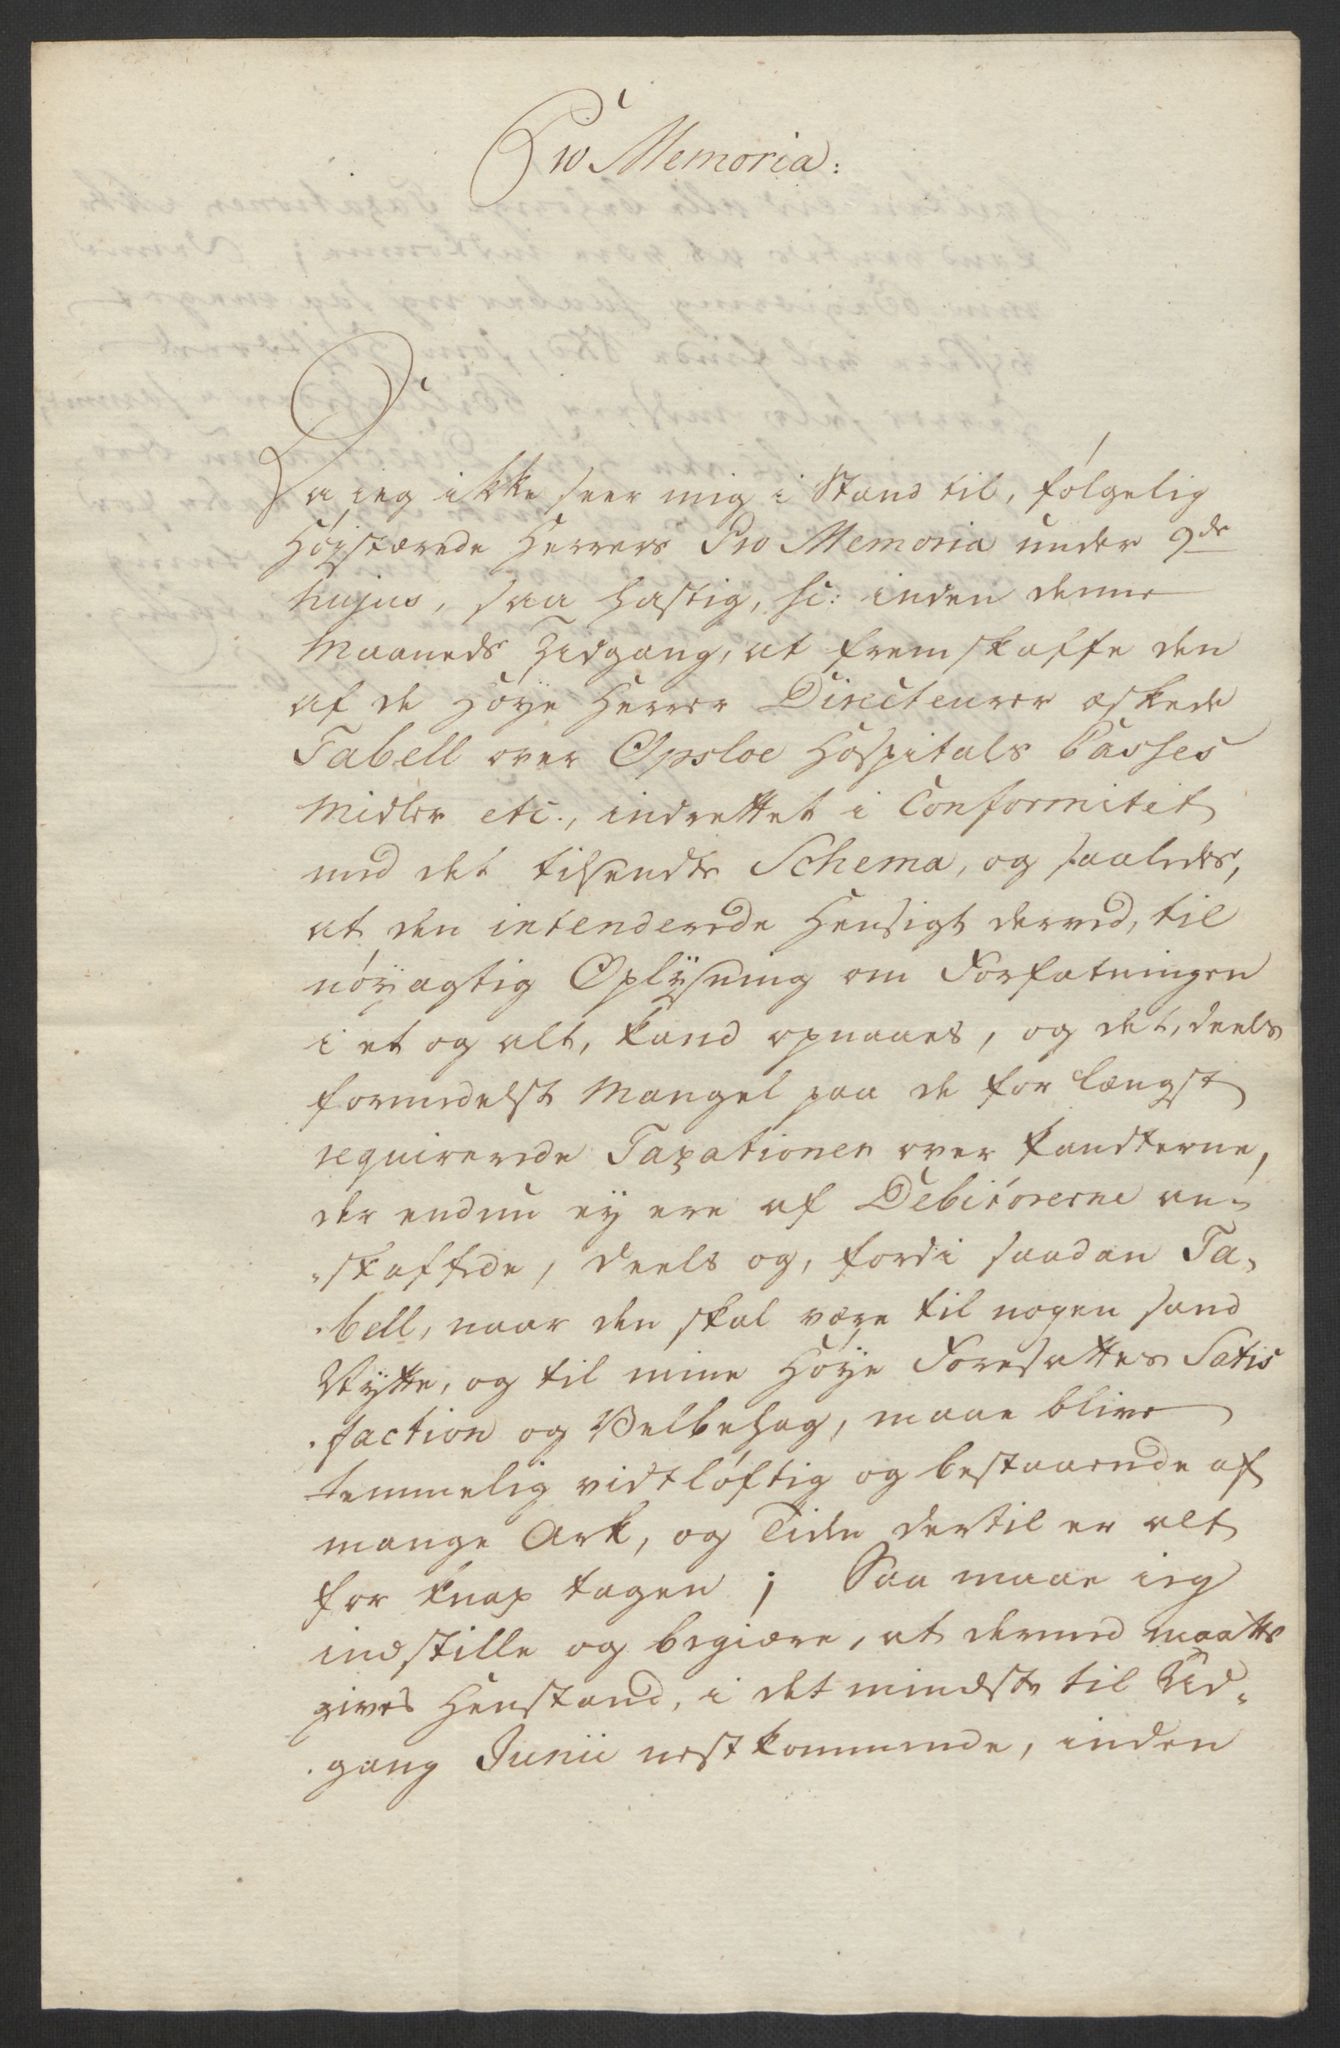 Pro Memoria:
Da ieg ikke seer mig i Stand til, følgelig
Høystærede Herrers Pro Memoria under 9de
hujus, saa hastig, sc: inden denne
Maaneds Udgang, at fremskaffe den
af de Høye Herrer Directeurer æskede
Tabell over Opsloe Hospitals Casses
Midler etc., indrettet i Conformitet
med det tilsendte Schema, og saaledes,
at den intenderede Hensigt derved, til
nøyagtig Oplysning om Forfatningen
i et og alt, kand opnaaes, og det, deels
formedelst Mangel paa de for længst
requirerede Taxationer over Pandterne,
der endnu ey ere af Debitorerne an-
skaffede, deels og, fordi saadan Ta-
bell, naar den skal være til nogen sand
Nytte, og til mine Høye Foresattes Satis
faction og Velbehag, maae blive
temmelig vidtløftig og bestaaende af
mange Ark, og Tiden dertil er alt
for knap tagen; Saa maae ieg
indstille og begiære, at dermed maatte
gives Henstand, i det mindste til Ud-
gang Junii nestkommende, inden